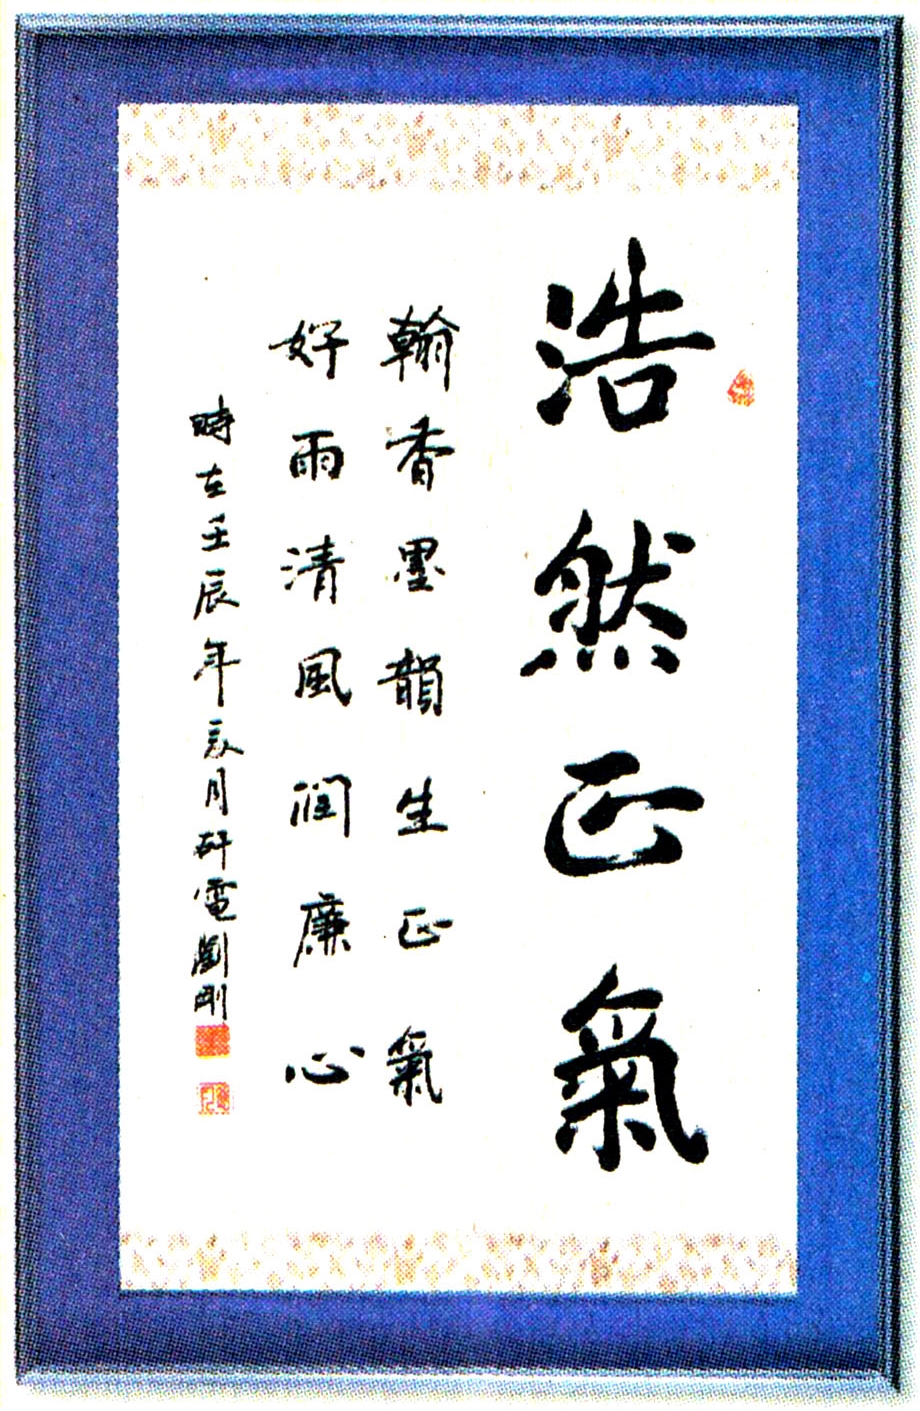 浩然正氣
翰香墨韻生正氣
好雨清風潤廉心
時在壬辰年亥月研電劉剛